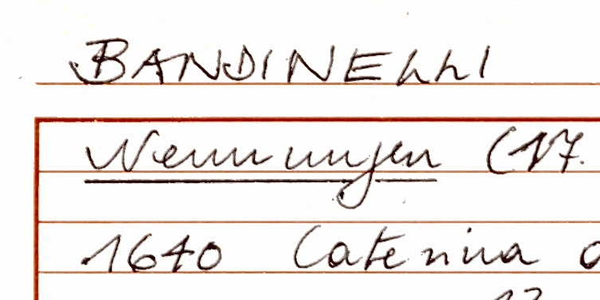 BANDINELLI
Nennungen (17.
1640 Caterina